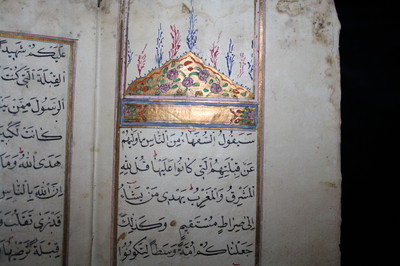 سَيَقُولُ السُّفَهَاءُ مِنَ النَّاسِ مَا وَلّٰيهُمْ
عَنْ قِبْلَتِهِمُ الَّتِي كَانُوا عَلَيْهَا قُلْ لِلّٰهِ
الْمَشْرِقُ وَالْمَغْرِبُ يَهْدِي مَنْ يَشَاءُ
اِلٰى صِرَاطٍ مُسْتَقِيمٍ وَكَذٰلِكَ
جَعَلْنَاكُمْ اُمَّةً وَسَطًا لِتَكُونُوا
عَلَيْكُمْ شَهِيدًا
الْقِبْلَةَ الَّتِي كُنْتَ
الرَّسُولَ مِمَّنْ
كَانَتْ
هَدَى اللّٰهُ وَمَا
اِنَّ اللّٰهَ بِالنَّاسِ
قَدْ نَرٰى تَقَلُّبَ
قِبْلَةً تَرْضٰيهَا